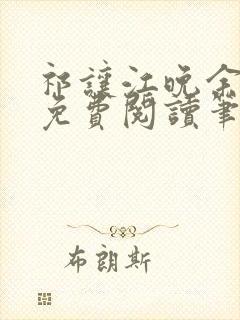 祁讓江晚余
免費閱讀筆
布朗斯